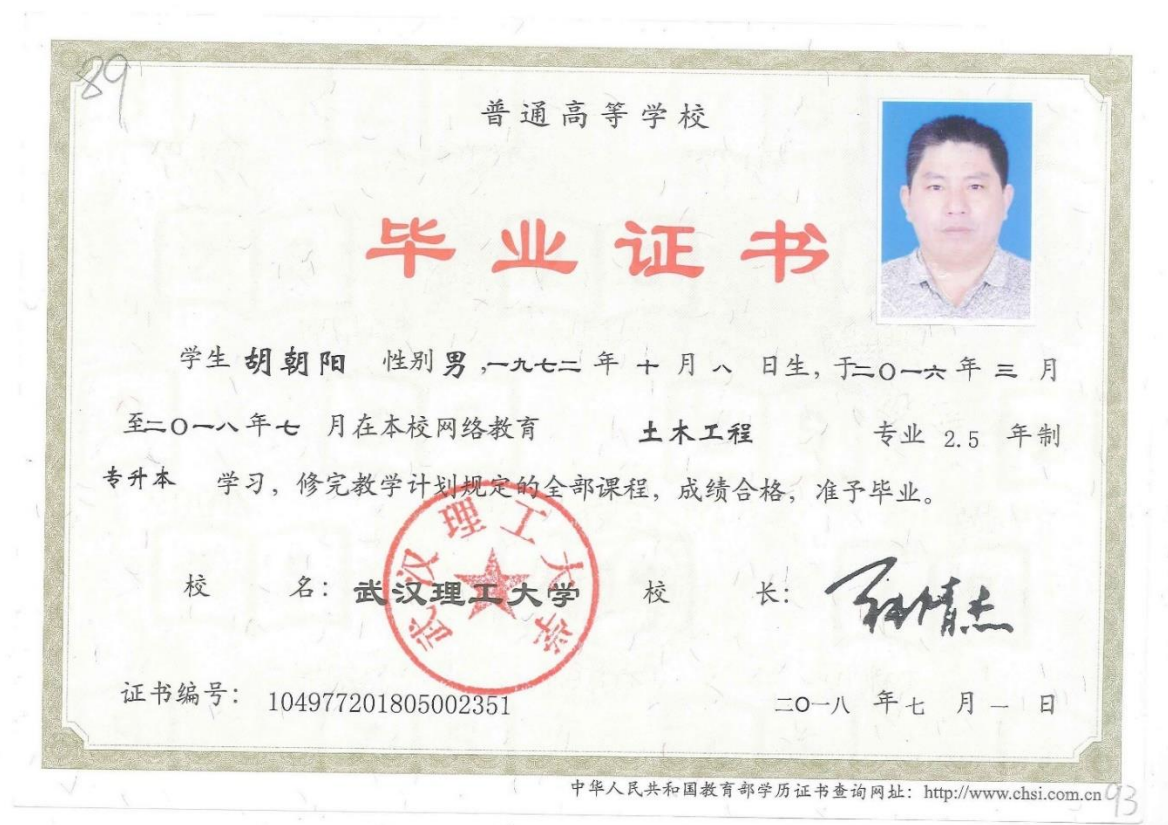 89
普通高等学校
毕业证书
学生 胡朝阳 性别 男 ,一九七二 年 十 月 八 日生, 于二〇一六 年 三 月
至二〇一八 年 七 月在本校网络教育 土木工程 专业 2.5 年制
专升本 学习, 修完教学计划规定的全部课程, 成绩合格, 准予毕业。
校 名: 武汉理工大学 校 长:
武汉理工大学
证书编号: 104977201805002351 二〇一八 年 七 月 一 日
中华人民共和国教育部学历证书查询网址: http://www.chsi.com.cn
93